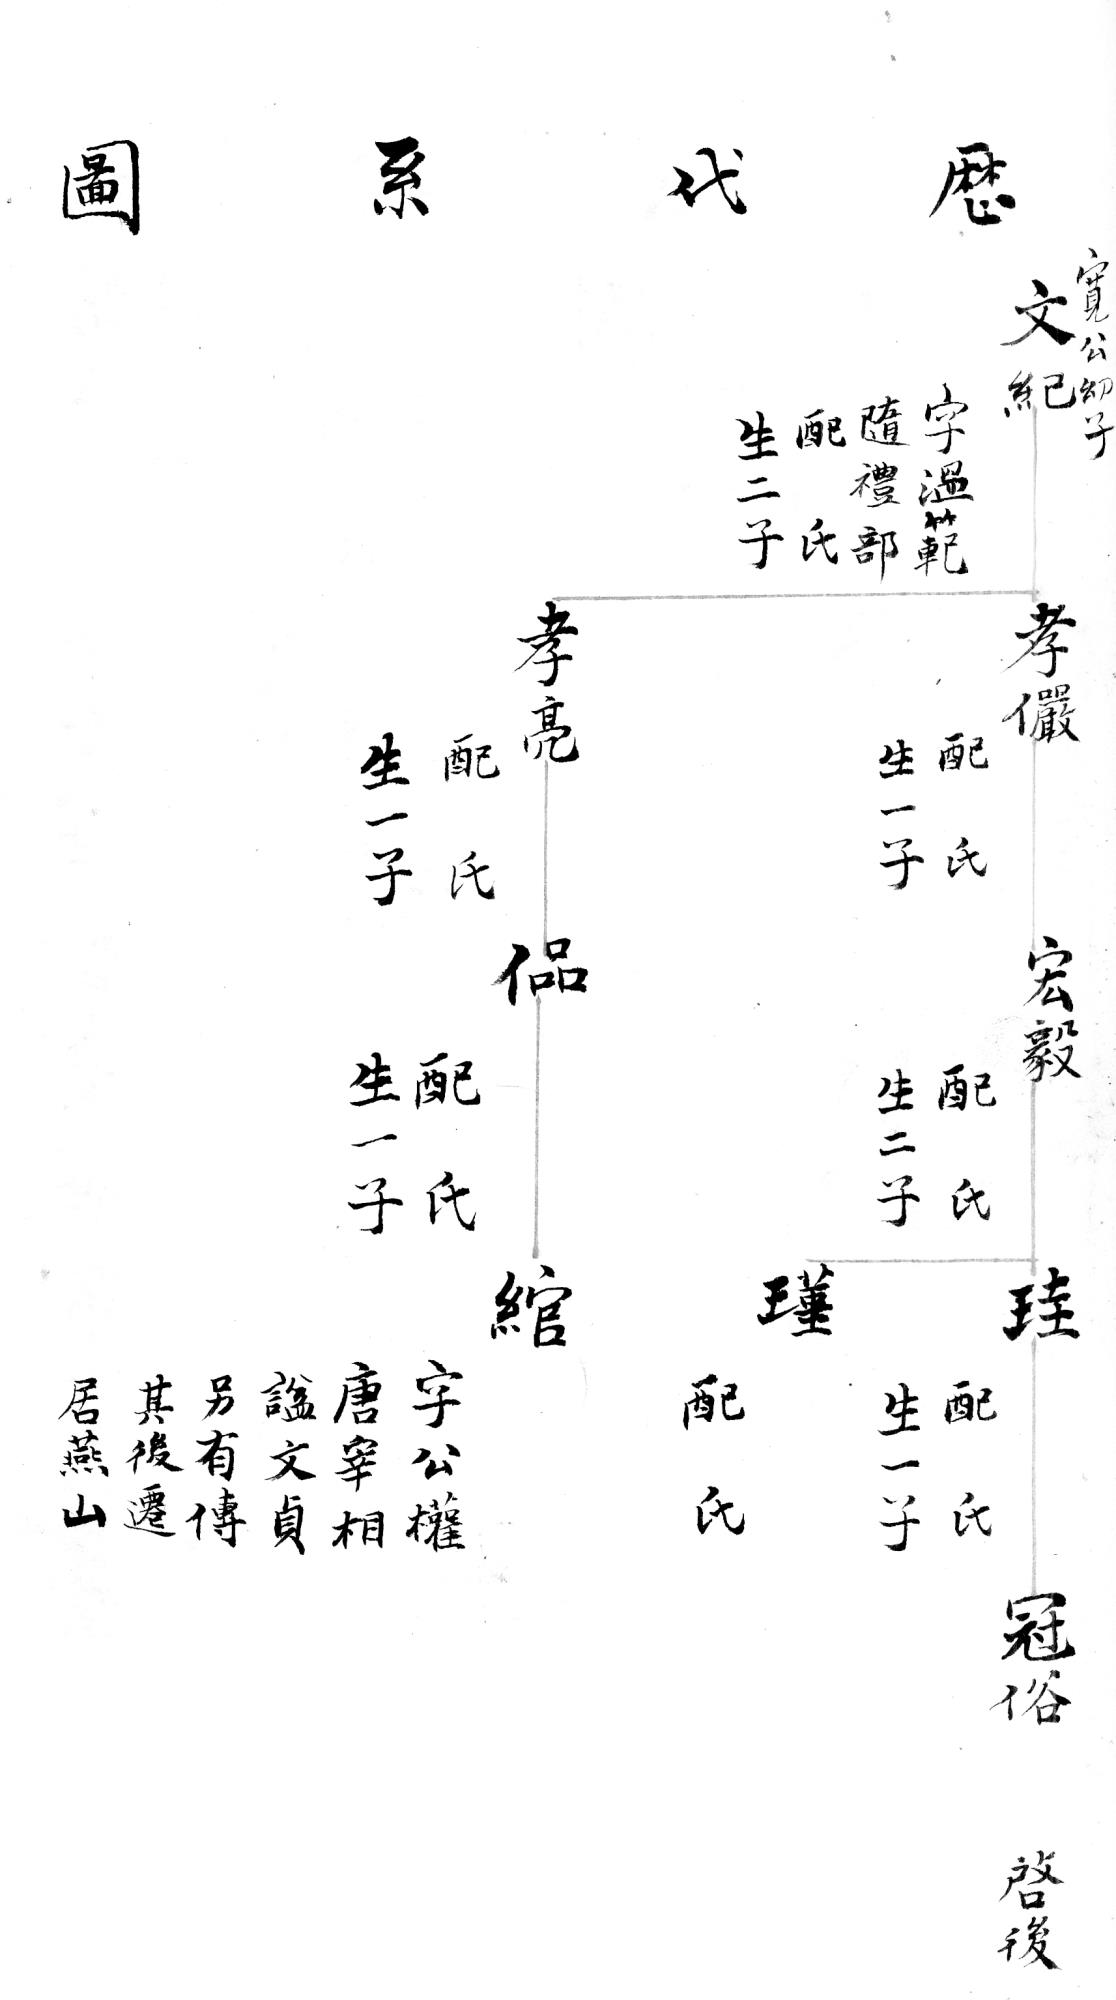 歷代系圖
寬公幼子
文紀
字溫範
隨禮部
配 氏
生二子
孝儼
配 氏
生一子
孝亮
配 氏
生一子
宏毅
配 氏
生二子
佀
配 氏
生一子
珪
配 氏
生一子
瑾
配 氏
綰
字公權
唐宰相
諡文貞
另有傳
其後遷
居燕山
冠俗
啓後